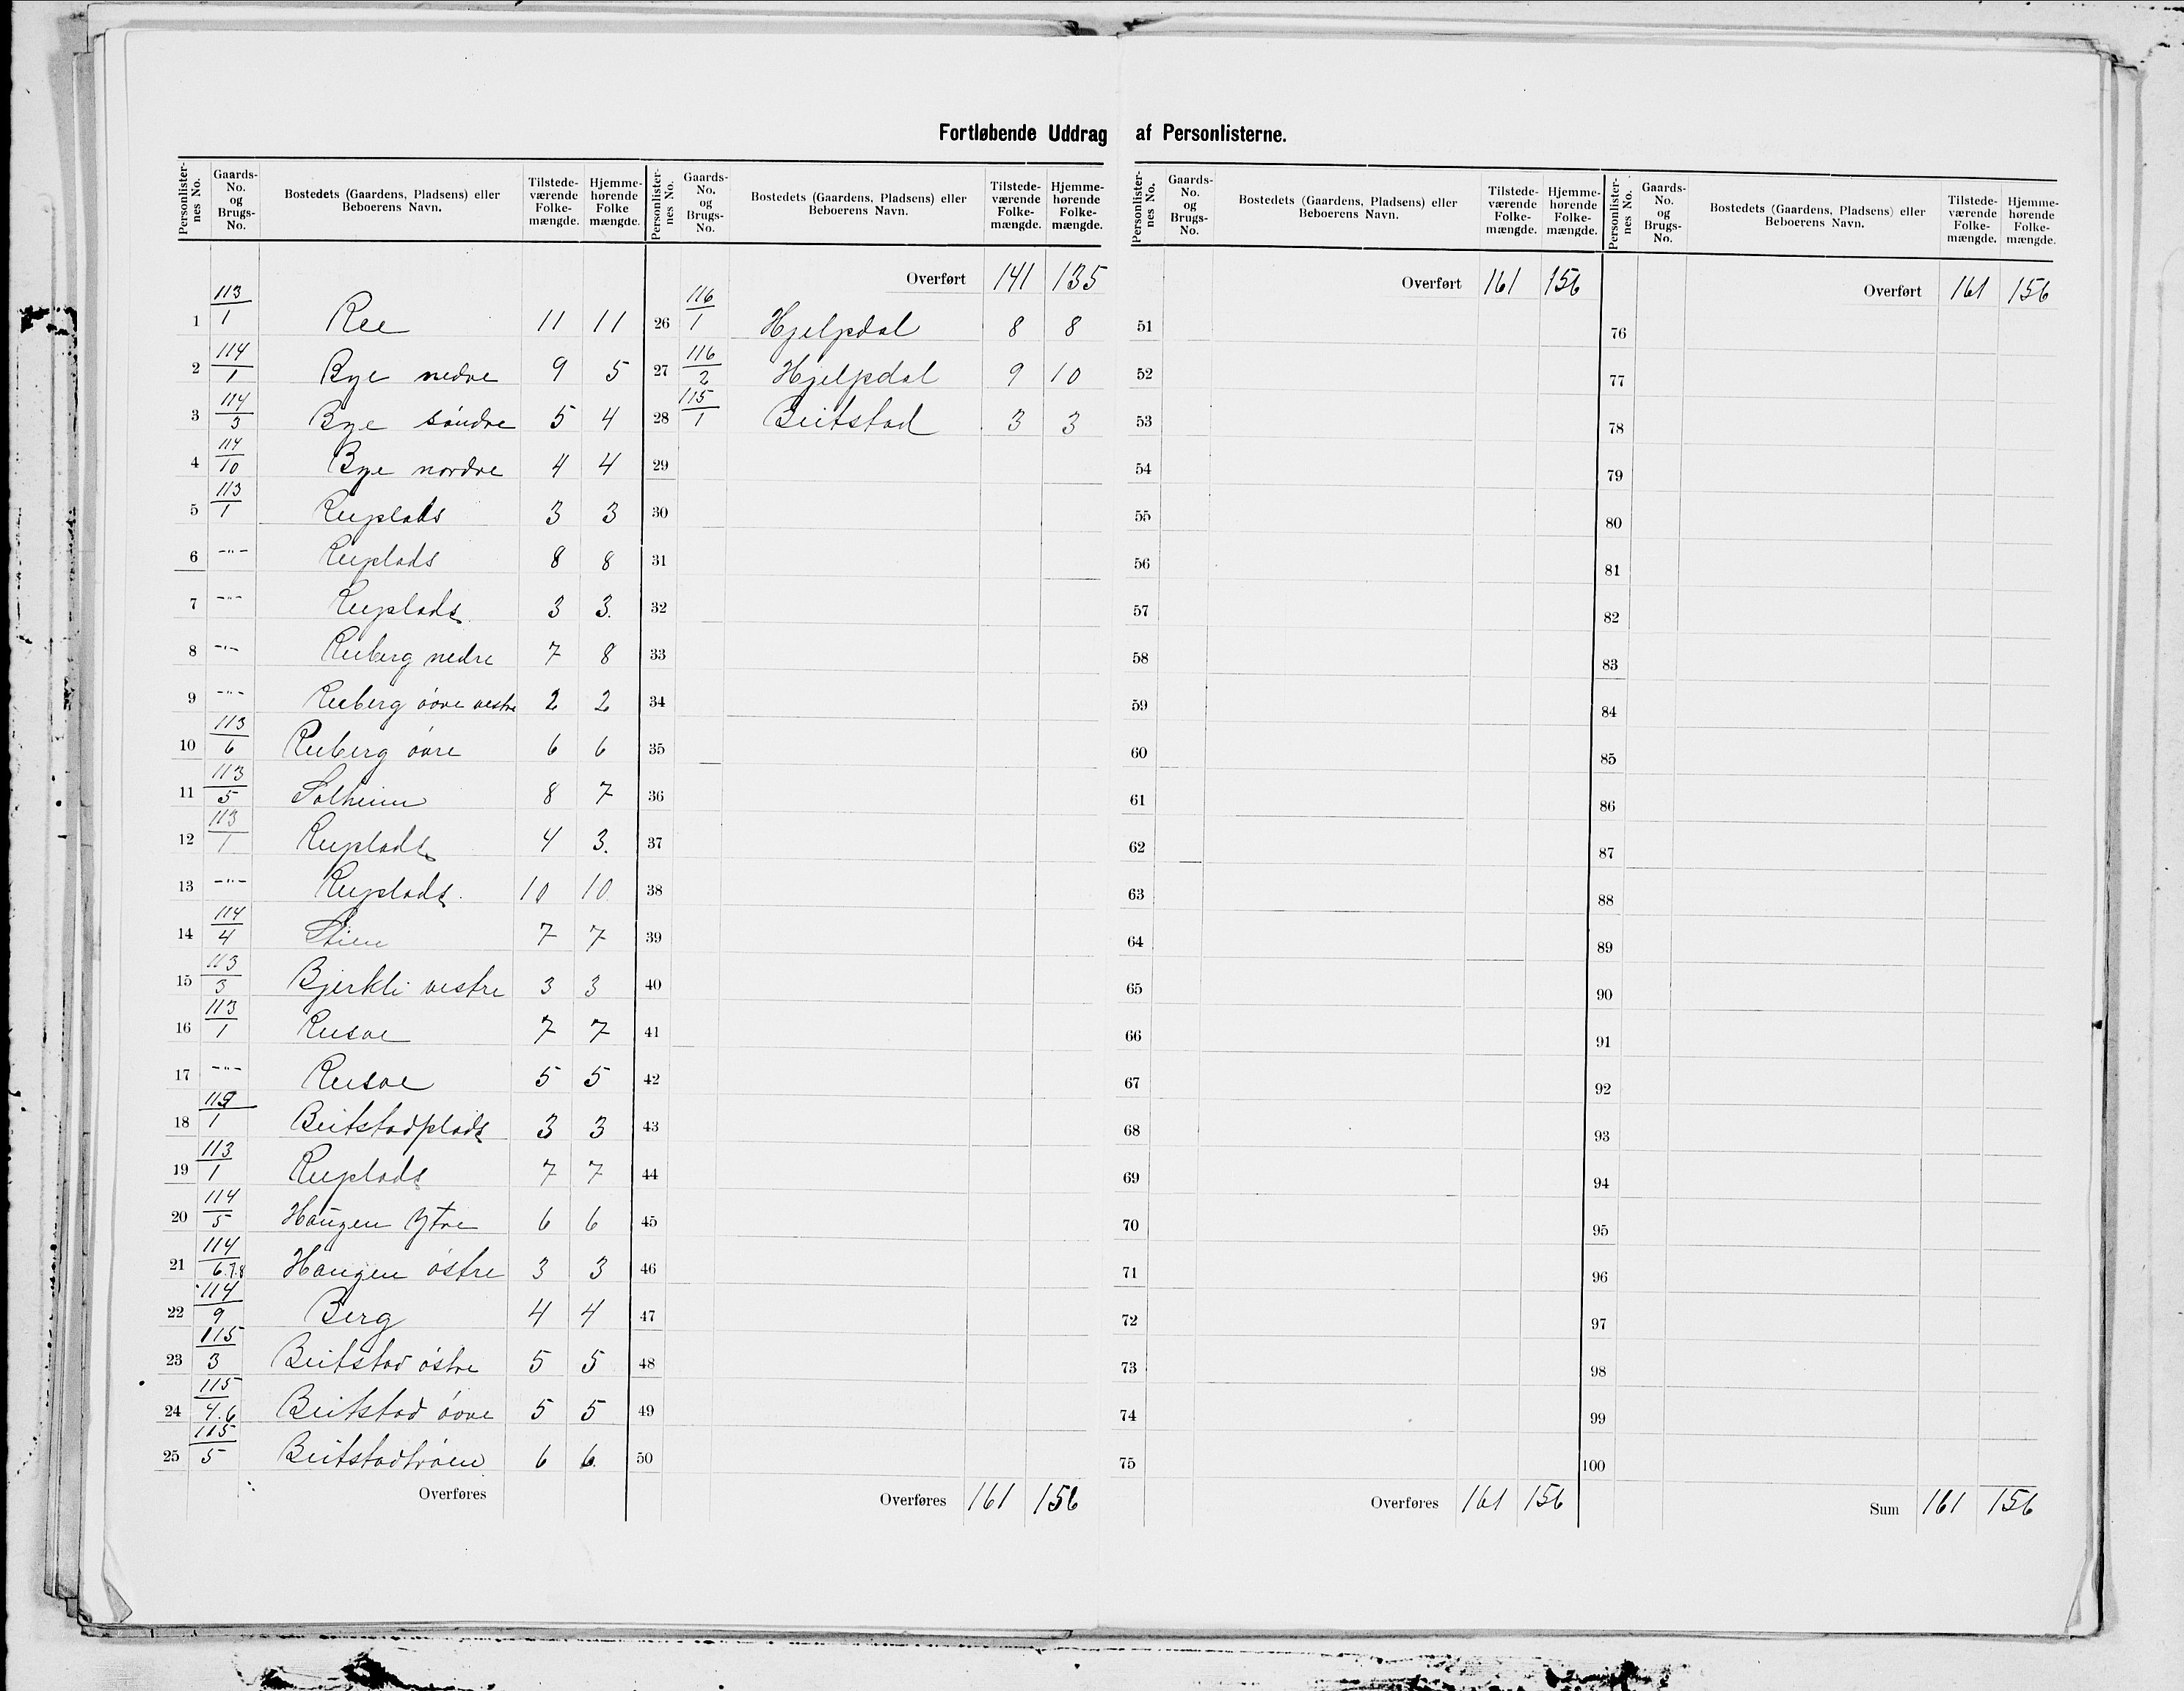 Fortløbende Uddrag af Personlisterne.
Personlisternes No. Gaards-No. og Brugs-No. Bostedets (Gaardens, Pladsens) eller Beboerens Navn. Tilstedeværende Folkemængde. Hjemmehørende Folke mængde.
1 113/1 Ree 11 11
2 114/1 Bye nedre 9 5
3 114/3 Bye söndre 5 4
4 114/10 Bye nordre 4 4
5 113/1 Reeplads 3 3
6 -"- Reeplads 8 8
7 -"- Reeplads 3 3.
8 -"- Reeberg nedre 7 8
9 -"- Reeberg övre vestre 2 2
10 113/6 Reeberg övre 6 6
11 113/5 Solheim 8 7
12 113/1 Reeplads 4 3.
13 -"- Reeplads. 10 10
14 114/4 Stien 7 7
15 113/3 Bjerkli vestre 3 3
16 113/1 Reesve 7 7
17 -"- Reesve 5 5
18 115/1 Beitstadplads 3 3
19 113/1 Reeplads 7 7
20 114/5 Haugen Ytre 6 6
21 114/6.7.8 Haugen östre 3 3
22 114/9 Berg 4 4
23 115/3 Beitstad östre 5 5
24 115/4.6 Beitstad övre 5 5
25 115/5 Beitstadtröen 6 6.
Overføres
Personlisternes No. Gaards-No. og Brugs-No. Bostedets (Gaardens, Pladsens) eller Beboerens Navn. Tilstedeværende Folkemængde. Hjemmehørende Folkemængde.
Overført 141 135
26 116/1 Hjelpdal 8 8
27 116/2 Hjelpdal 9 10
28 115/1 Beitstad 3 3
29
30
31
32
33
34
35
36
37
38
39
40
41
42
43
44
45
46
47
48
49
50
Overføres 161 156
Personlisternes No. Gaards-No. og Brugs-No. Bostedets (Gaardens, Pladsens) eller Beboerens Navn. Tilstedeværende Folkemængde. Hjemmehørende Folkemængde.
Overført 161 156
51
52
53
54
55
56
57
58
59
60
61
62
63
64
65
66
67
68
69
70
71
72
73
74
75
Overføres 161 156
Personlisternes No. Gaards-No. og Brugs-No. Bostedets (Gaardens, Pladsens) eller Beboerens Navn. Tilstedeværende Folkemængde. Hjemmehørende Folkemængde.
Overført 161 156
76
77
78
79
80
81
82
83
84
85
86
87
88
89
90
91
92
93
94
95
96
97
98
99
100
Sum 161 156